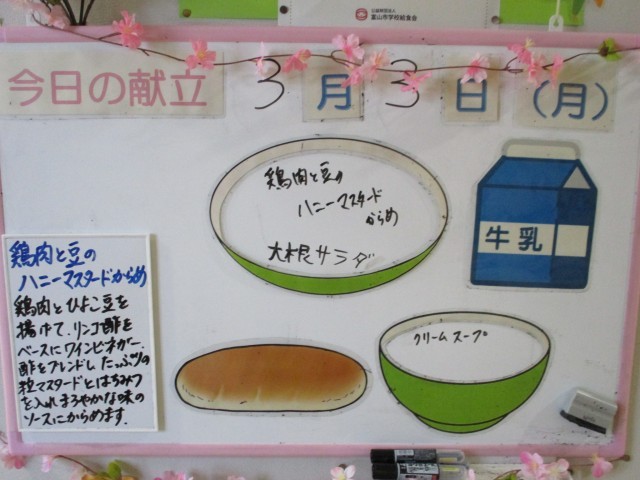 公益財団法人
富山市学校給食会
今日の献立 3月3日(月)
鶏肉と豆の
ハニーマスタード
からめ
大根サラダ
牛乳
クリームスープ
鶏肉と豆の
ハニーマスタードからめ
鶏肉とひよこ豆を
揚げて、リンゴ酢を
ベースにワインビネガー、
酢をブレンドし、たっぷりの
粒マスタードとはちみつ
を入れまろやかな味の
ソースにからめます。